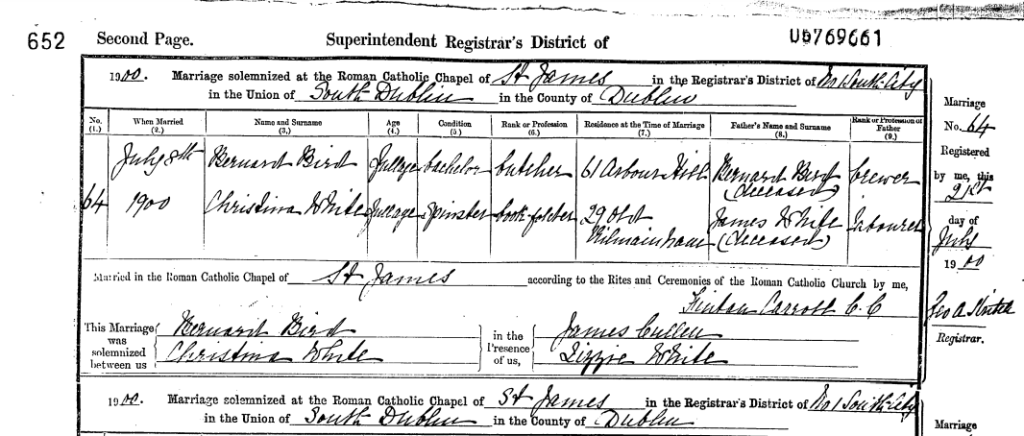 652 Second Page. Superintendent Registrar's District of U0769661
1900. Marriage solemnized at the Roman Catholic Chapel of St James in the Registrar's District of No 1 South City
in the Union of South Dublin in the County of Dublin
No. (1.) When Married (2.) Name and Surname (3.) Age (4.) Condition (5.) Rank or Profession (6.) Residence at the Time of Marriage (7.) Father's Name and Surname (8.) Rank or Profession of Father (9.)
July 8th Bernard Bird full age bachelor butcher 61 Arbour Hill Bernard Bird (deceased) brewer
64 1900 Christina White full age spinster book-folder 29 Old Kilmainham James White (deceased) labourer
Married in the Roman Catholic Chapel of St James according to the Rites and Ceremonies of the Roman Catholic Church by me,
Fintan Carroll C.C
This Marriage was solemnized between us Bernard Bird
Christina White
in the Presence of us, James Cullen
Lizzie White
Marriage
No. 64
Registered
by me, this
21st
day of
July
1900
Geo A
Registrar.
1900. Marriage solemnized at the Roman Catholic Chapel of St James in the Registrar's District of No 1 South City
in the Union of South Dublin in the County of Dublin
Marriage